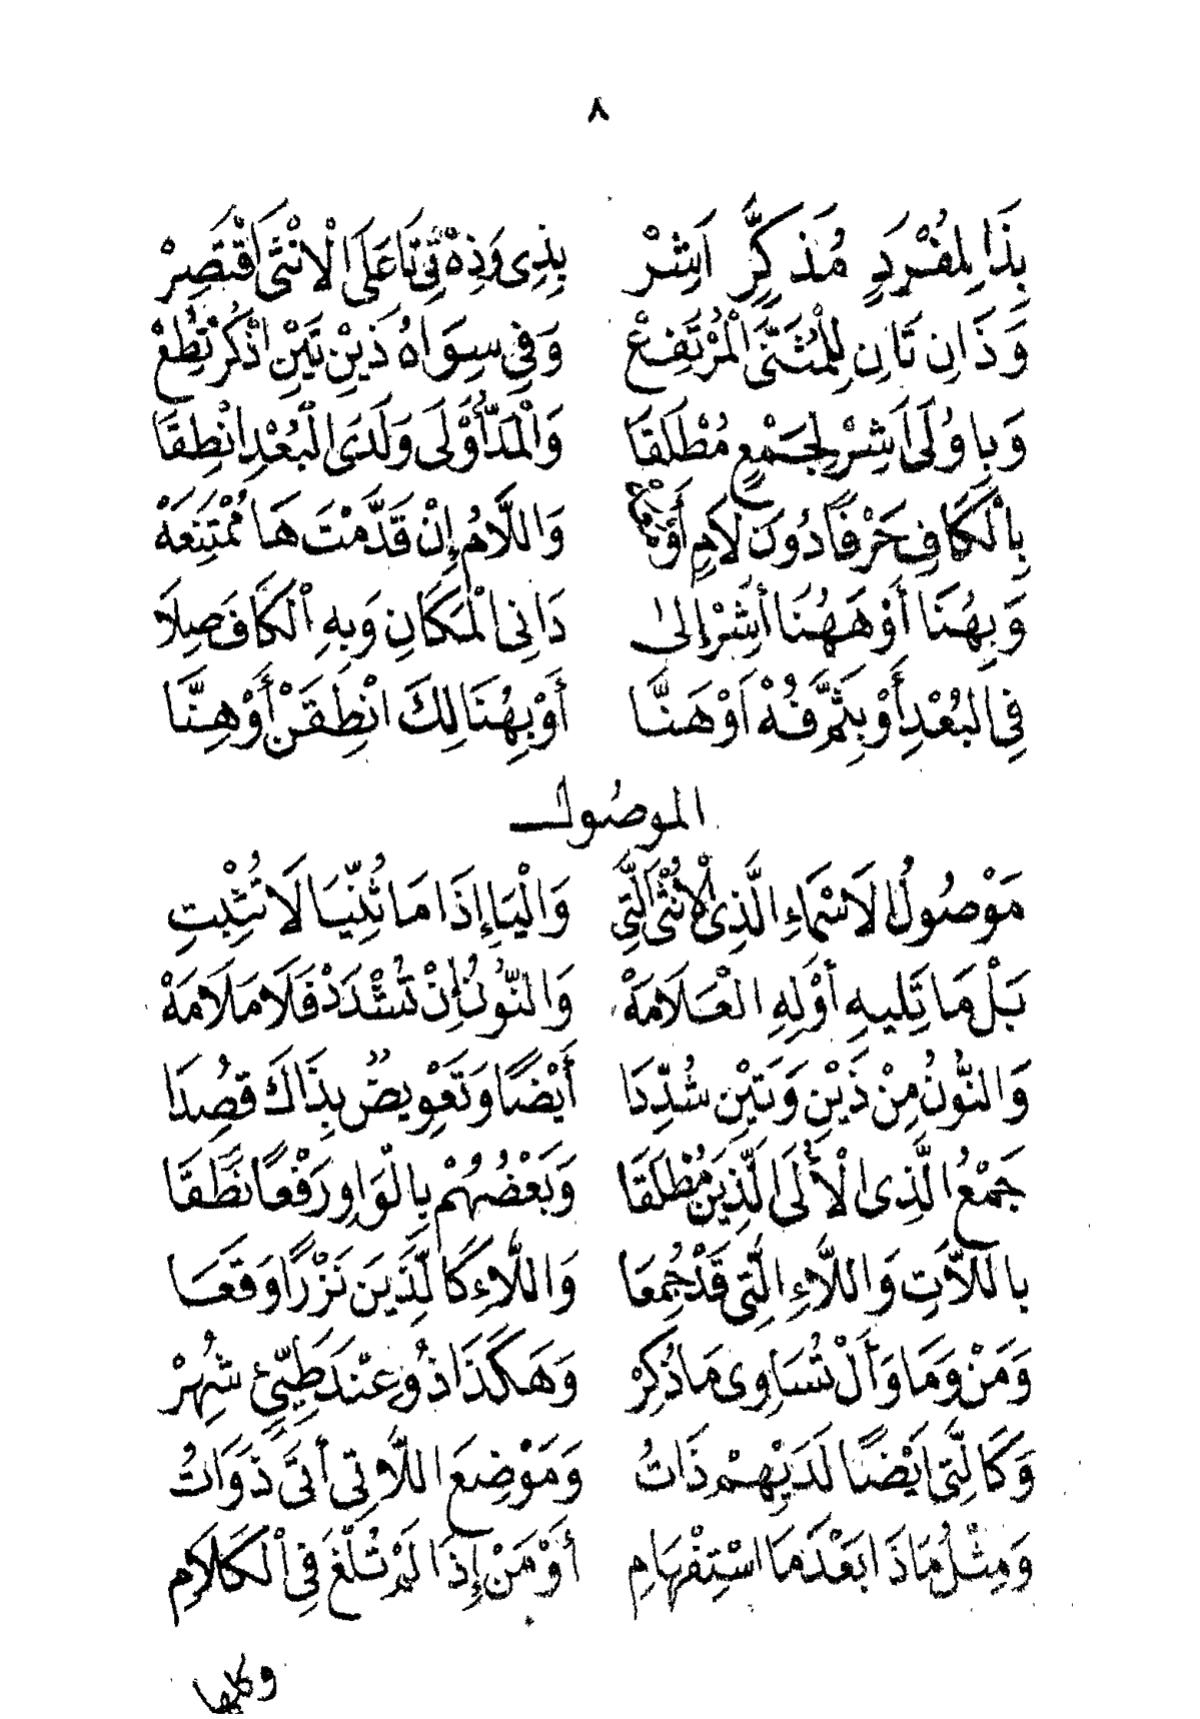 ٨
بِذَا لِمُفْرَدٍ مُذَكَّرٍ اَشِرْ بِذِى وَذِهْ تِى تَا عَلَى الْاُنْثَى اقْتَصِرْ
وَذَانِ تَانِ لِلْمُثَنَّى الْمُرْتَفِعْ وَفِى سِوَاهُ ذَيْنِ تَيْنِ اذْكُرْ تُطِعْ
وَبِاُولَى اَشِرْ لِجَمْعٍ مُطْلَقَا وَالْمَدُّ أَوْلَى وَلَدَى الْبُعْدِ انْطِقَا
بِالْكَافِ حَرْفًا دُونَ لَامٍ أَوْ مَعَهْ وَاللَّامُ إِنْ قَدَّمْتَ هَا مُمْتَنِعَهْ
وَبِهُنَا أَوْ هَهُنَا أَشِرْ إِلى دَانِى الْمَكَانِ وَبِهِ الْكَافَ صِلَا
فِى الْبُعْدِ أَوْ بِثَمَّ فُهْ اَوْ هَنَّا أَوْ بِهُنَالِكَ انْطِقَنْ أَوْ هِنَّا
الموصُول
مَوْصُولُ الاَسْمَاءِ الَّذِى الْاُنْثَى الَّتِى وَالْيَا إِذَا مَا ثُنِّيَا لَا تُثْبِتِ
بَلْ مَا تَلِيهِ أَوْلِهِ الْعَلَامَهْ وَالنُّونُ إِنْ تُشْدَدْ فَلَا مَلَامَهْ
وَالنُّونُ مِنْ ذَيْنِ وَتَيْنِ شُدِّدَا أَيْضًا وَتَعْوِيضٌ بِذَاكَ قُصِدَا
جَمْعُ الَّذِى الْأُلَى الَّذِينَ مُطْلَقَا وَبَعْضُهُمْ بِالْوَاوِ رَفْعًا نَطَقَا
بِاللَّاتِ وَاللَّاءِ الَّتِى قَدْ جُمِعَا وَاللَّاءِ كَالَّذِينَ نَزْرًا وَقَعَا
وَمَنْ وَمَا وَأَلْ تُسَاوِى مَا ذُكِرْ وَهَكَذَا ذُو عِنْدَ طَيِّئٍ شُهِرْ
وَكَالَّتِى اَيْضًا لَدَيْهِمْ ذَاتُ وَمَوْضِعَ اللَّاتِى أَتَى ذَوَاتُ
وَمِثْلُ مَا ذَا بَعْدَ مَا اسْتِفْهَامِ أَوْ مَنْ إِذَا لَمْ تُلْغَ فِى الْكَلَامِ
وكلها